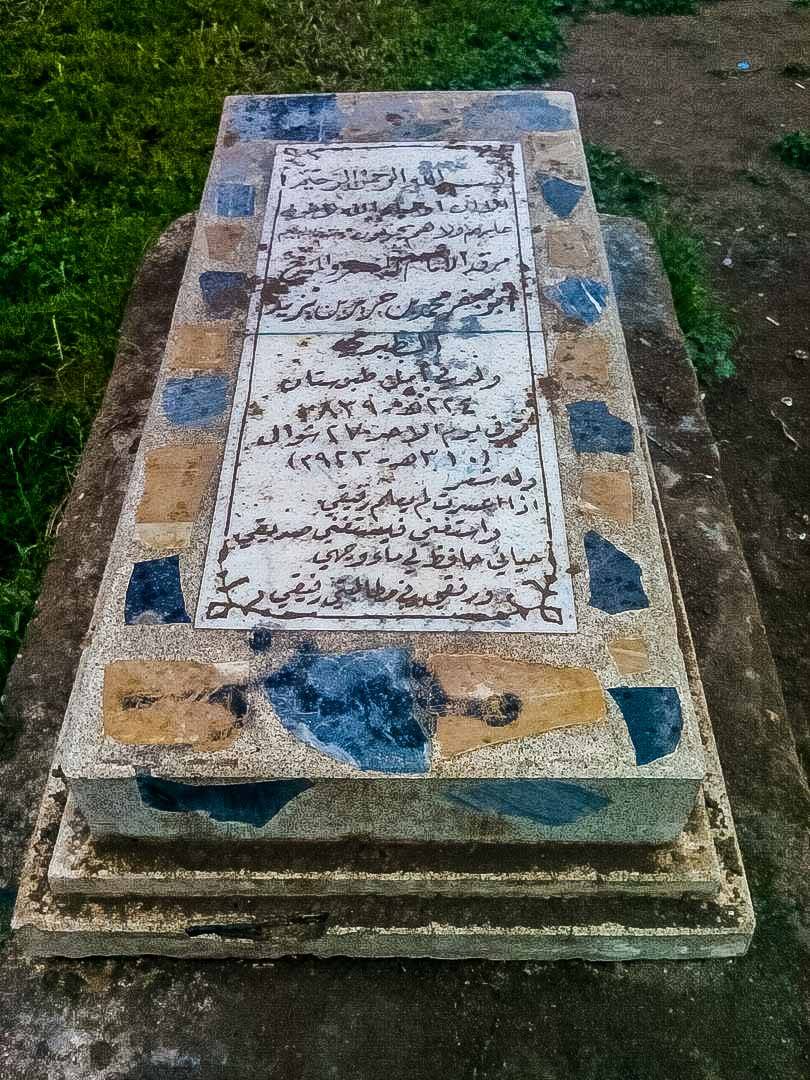 بسم الله الرحمن الرحيم
الا ان اولياء الله لا خوف
عليهم ولا هم يحزنون
مرقد الامام المؤرخ
ابو جعفر محمد بن جرير بن يزيد
الطبري
ولد في آمل طبرستان
٢٢٤هـ ٨٣٩م
توفي يوم الاحد ٢٧ شوال
(٣١٠هـ - ٩٢٣م)
وله شعر
اذا اعسرت لم يعلم رفيقي
واستغني فيستغني صديقي
حيائي حافظ لي ماء وجهي
ورفقي في مطالبتي رفيقي